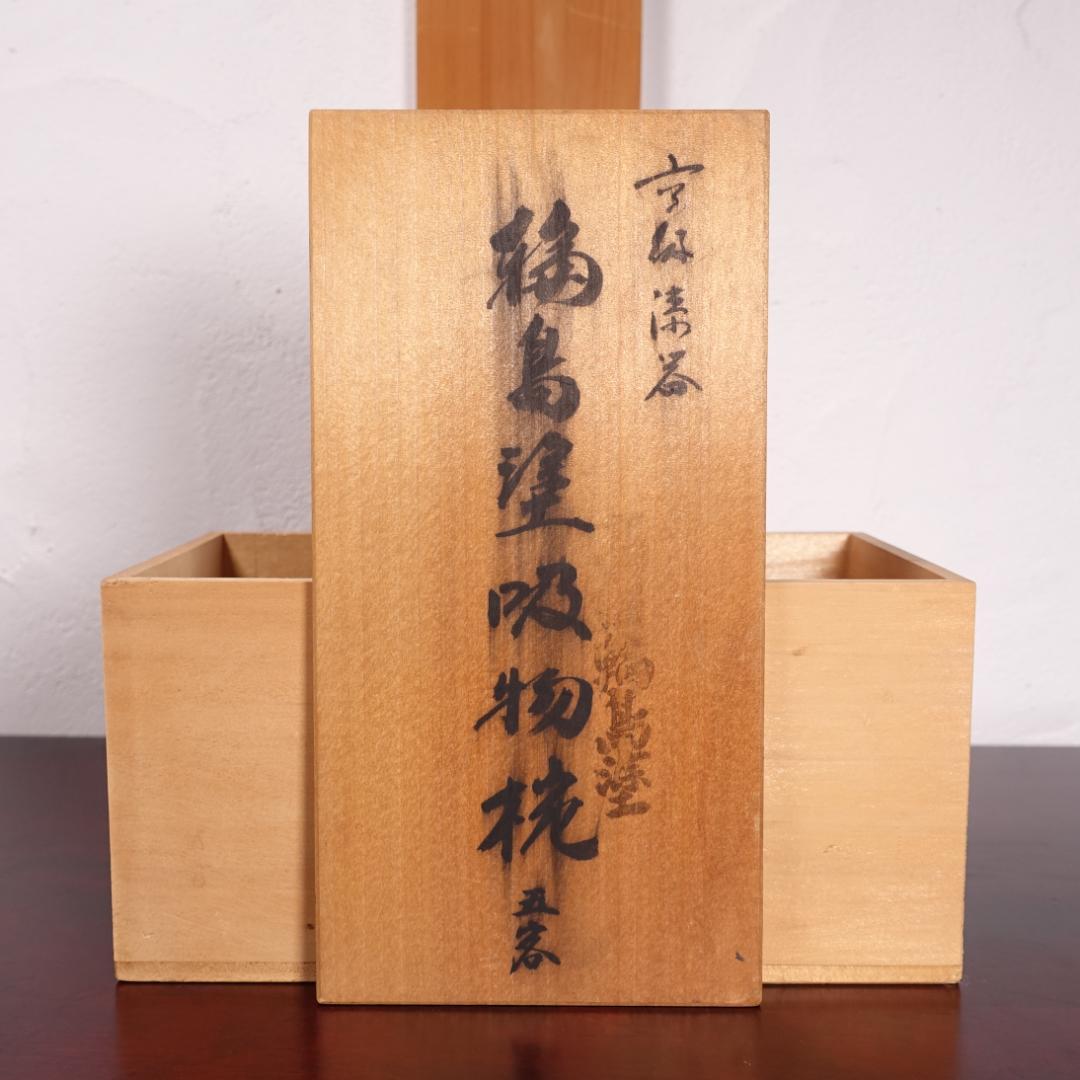 漆器
輪島塗吸物椀
五客
輪島塗